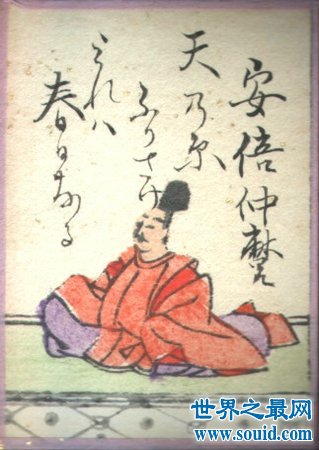 安倍仲麿
天乃原
ふりさけ
みれハ
春日なる
世界之最网
www.souid.com